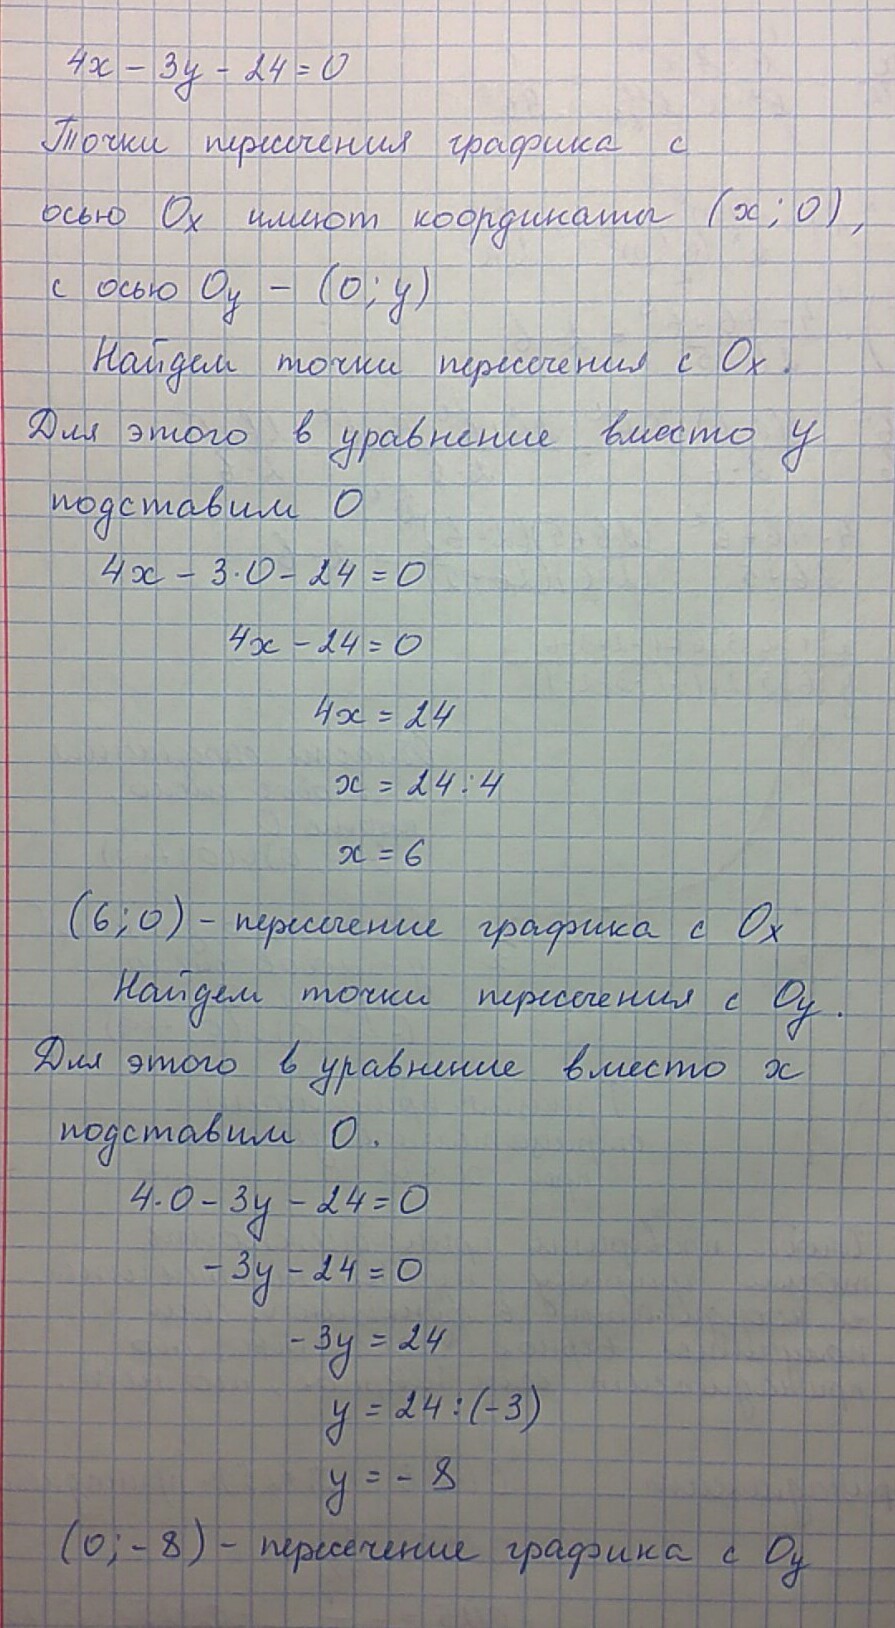 4x - 3y - 24 = 0
Точки пересечения графика с
осью Ox имеют координаты (x; 0),
с осью Oy - (0; y)
Найдем точки пересечения с Ox.
Для этого в уравнение вместо y
подставим 0
4x - 3·0 - 24 = 0
4x - 24 = 0
4x = 24
x = 24 : 4
x = 6
(6; 0) - пересечение графика с Ox
Найдем точки пересечения с Oy.
Для этого в уравнение вместо x
подставим 0.
4·0 - 3y - 24 = 0
-3y - 24 = 0
-3y = 24
y = 24 : (-3)
y = -8
(0; -8) - пересечение графика с Oy